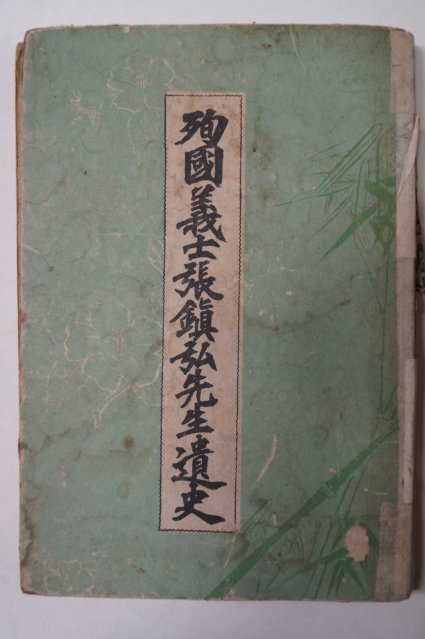 殉國義士張鎭弘先生遺史